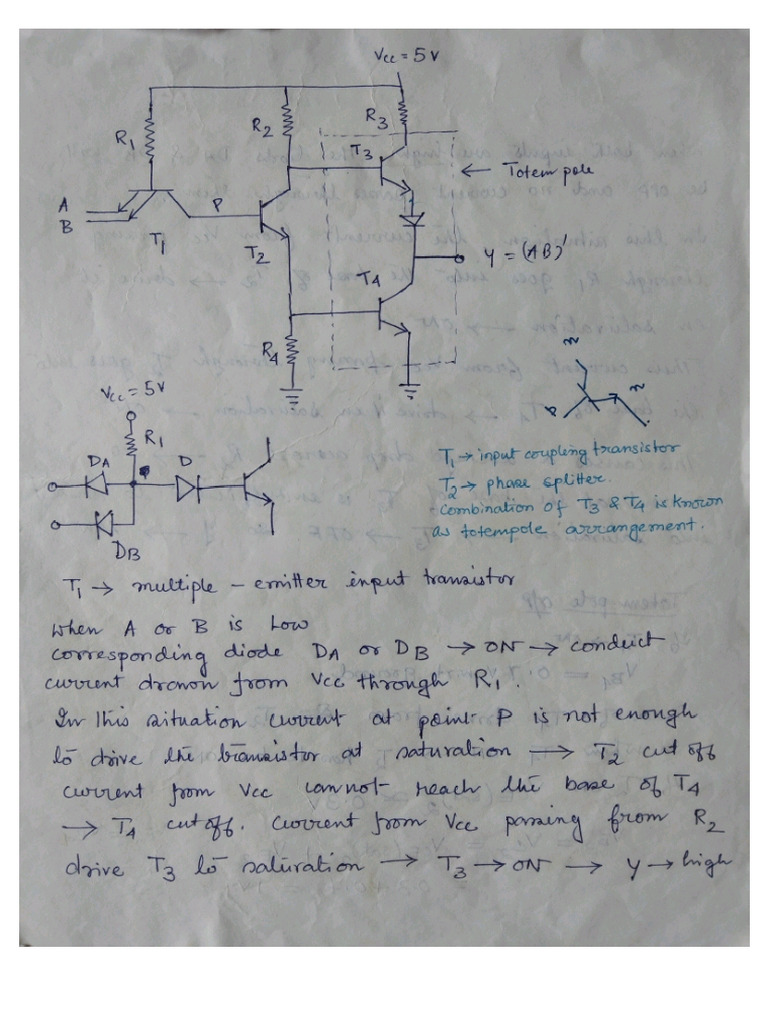 Vcc = 5V
R1
R2
R3
T3
Totem pole
A
B
P
T1
T2
T4
Y = (AB)'
R4
Vcc = 5V
R1
DA
D
DB
N
P
N
T1 → input coupling transistor
T2 → phase splitter.
combination of T3 & T4 is known
as totempole arrangement.
T1 → multiple - emitter input transistor
when A or B is Low
corresponding diode DA or DB → ON → conduct
current drawn from Vcc through R1.
In this situation current at point P is not enough
to drive the transistor at saturation → T2 cut off
current from Vcc cannot reach the base of T4
→ T4 cut off. current from Vcc passing from R2
drive T3 to saturation → T3 → ON → Y → high